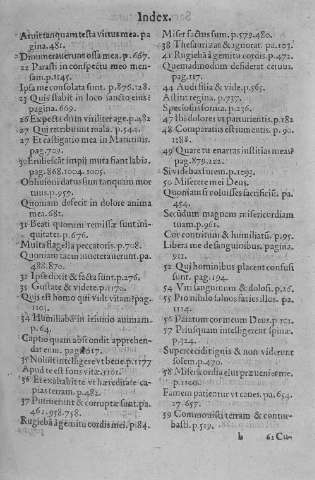 Index.
Aruit tanquam testa virtus mea. pa
gina.481.
Dinumerauerunt ossa mea. p.667.
22 Parasti in conspectu meo men-
sam. p.1145.
Ipsa me consolata sunt. p.876.128.
23 Quis stabit in loco sancto eius?
pagina.669.
26 Expecte dñm viriliter age. p.482
27 Qui retribuunt mala. p.544.
27 Et castigatio mea in Matutinis.
pag.709.
30 Erubescãt impij muta fiant labia.
pag.868.1004.1005.
Obliuioni datus sum tanquam mor
tuus. p.959.
Quoniam defecit in dolore anima
mea.681.
31 Beati quorum remissæ sunt ini-
quitates. p.676.
Multa flagella peccatoris. p.708.
Quoniam tacui inueterauerunt. pa
488.870.
32 Ipse dixit & facta sunt. p.276.
33 Gustate & videte. p.1170.
Quis est homo qui vult vitam? pag.
1103.
34 Humiliabã in ieiunio animam.
p.64.
Captio quam abscondit apprehen-
dat eum. pag.
35 Noluit intelligere vt bene. p.1177
Apud te est fons vitæ.
36 Et exaltabit te vt hæreditate ca
pias terram. p.482.
37 Putruerunt & corruptæ sunt. pa.
462.958.758.
Rugiebã à gemitu cordis mei. p.84.
Miser factus sum. p.579.480.
38 Thesaurizat & ignorat. pa.103.
41 Rugiebã à gemitu cordis. p.472.
Quemadmodum desiderat ceruus.
pag.117.
44 Audi filia & vide. p.565.
Astitit regina. p.737.
Speciosus forma. p.236.
47 Ibi dolores vt parturientis. p.182
48 Comparatus est iumentis. p.90.
1288.
49 Quare tu enarras iustitias meas?
pag.879.122.
Si videbas furem. p.1193.
50 Miserere mei Deus.
Quoniam si voluisses sacrificiũ. pa.
454.
Secũdum magnam misericordiam
tuam. p.961.
Cor contritum & humiliatũ. p.95.
Libera me de sanguinibus. pagina
911.
52 Qui hominibus placent confusi
sunt. pag.194.
54 Viri sanguinum & dolosi. p.26.
55 Pro nihilo saluos facies illos. pa.
1114.
56 Paratum cor meum Deus. p.1101.
57 Priusquam intelligerent spinæ.
p.324.
Supercecidit ignis & non viderunt
solem. p.470.
58 Misericordia eius præueniet me.
p.1100.
Famem patientur vt canes. pa.654.
27.657.
59 Commouisti terram & contur-
basti. p.519.
b
62 Cum